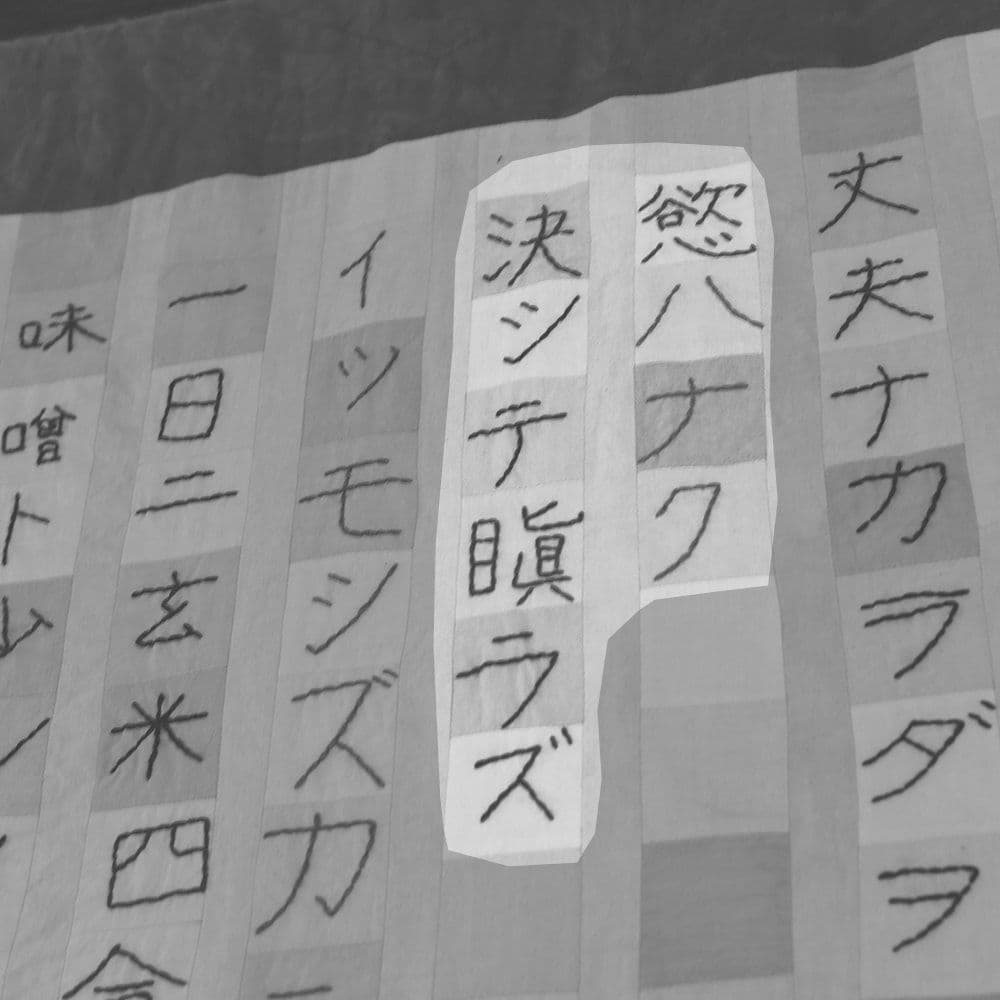 丈夫ナカラダヲ
慾ハナク
決シテ瞋ラズ
イツモシズカ
一日ニ玄米四合
味噌ト